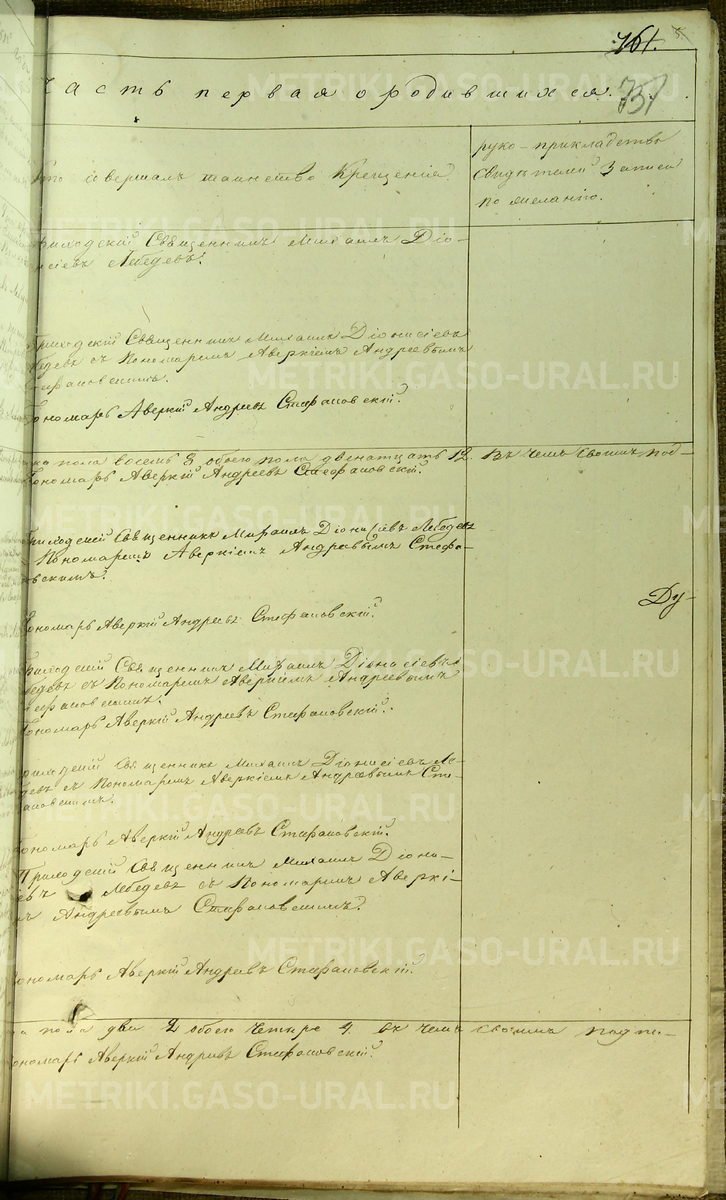 761.
757
Часть первая о родившихся.
Кто совершалъ таинство Крещенія.
руко-прикладство
свидѣтелей записи
по желанію.
Приходскій Священникъ Михаилъ Діо-
нисіевъ Лебедевъ.
Приходскій Священникъ Михаилъ Діонисіевъ
Лебедевъ съ Пономаремъ Аверкіемъ Андреевымъ
Стефановскимъ.
Пономарь Аверкій Андреевъ Стефановскій.
пола восемь 8 обоего пола двенатцать 12. Въ чемъ своимъ под-
Пономарь Аверкій Андреевъ Стефановскій.
Приходскій Священникъ Михаилъ Діонисіевъ Лебедевъ
Пономаремъ Аверкіемъ Андреевымъ Стефа-
новскимъ.
Ду-
Пономарь Аверкій Андреевъ Стефановскій.
Приходскій Священникъ Михаилъ Діонисіевъ
Лебедевъ съ Пономаремъ Аверкіемъ Андреевымъ
Стефановскимъ.
Пономарь Аверкій Андреевъ Стефановскій.
Приходскій Священникъ Михаилъ Діонисіевъ Ле-
бедевъ съ Пономаремъ Аверкіемъ Андреевымъ Сте-
фановскимъ.
Пономарь Аверкій Андреевъ Стефановскій.
Приходскій Священникъ Михаилъ Діони-
сіевъ Лебедевъ съ Пономаремъ Аверкі-
емъ Андреевымъ Стефановскимъ.
Пономарь Аверкій Андреевъ Стефановскій.
пола два 2 обоего четыре 4. въ чемъ своимъ подпи-
Пономарь Аверкій Андреевъ Стефановскій.
METRIKI.GASO-URAL.RU